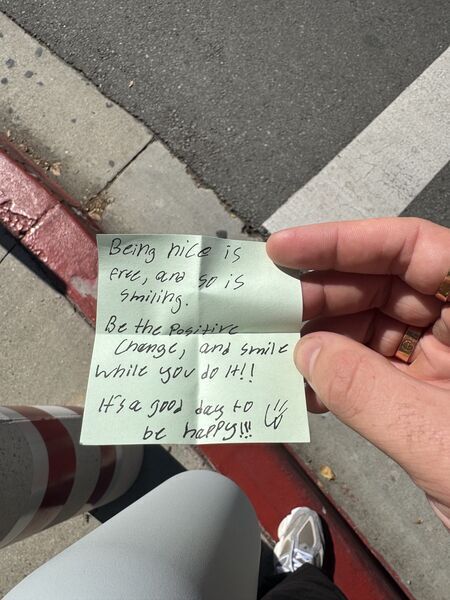 Being nice is
free, and so is
smiling.
Be the Positive
Change, and smile
while you do it!!
It's a good day to
be happy!!!